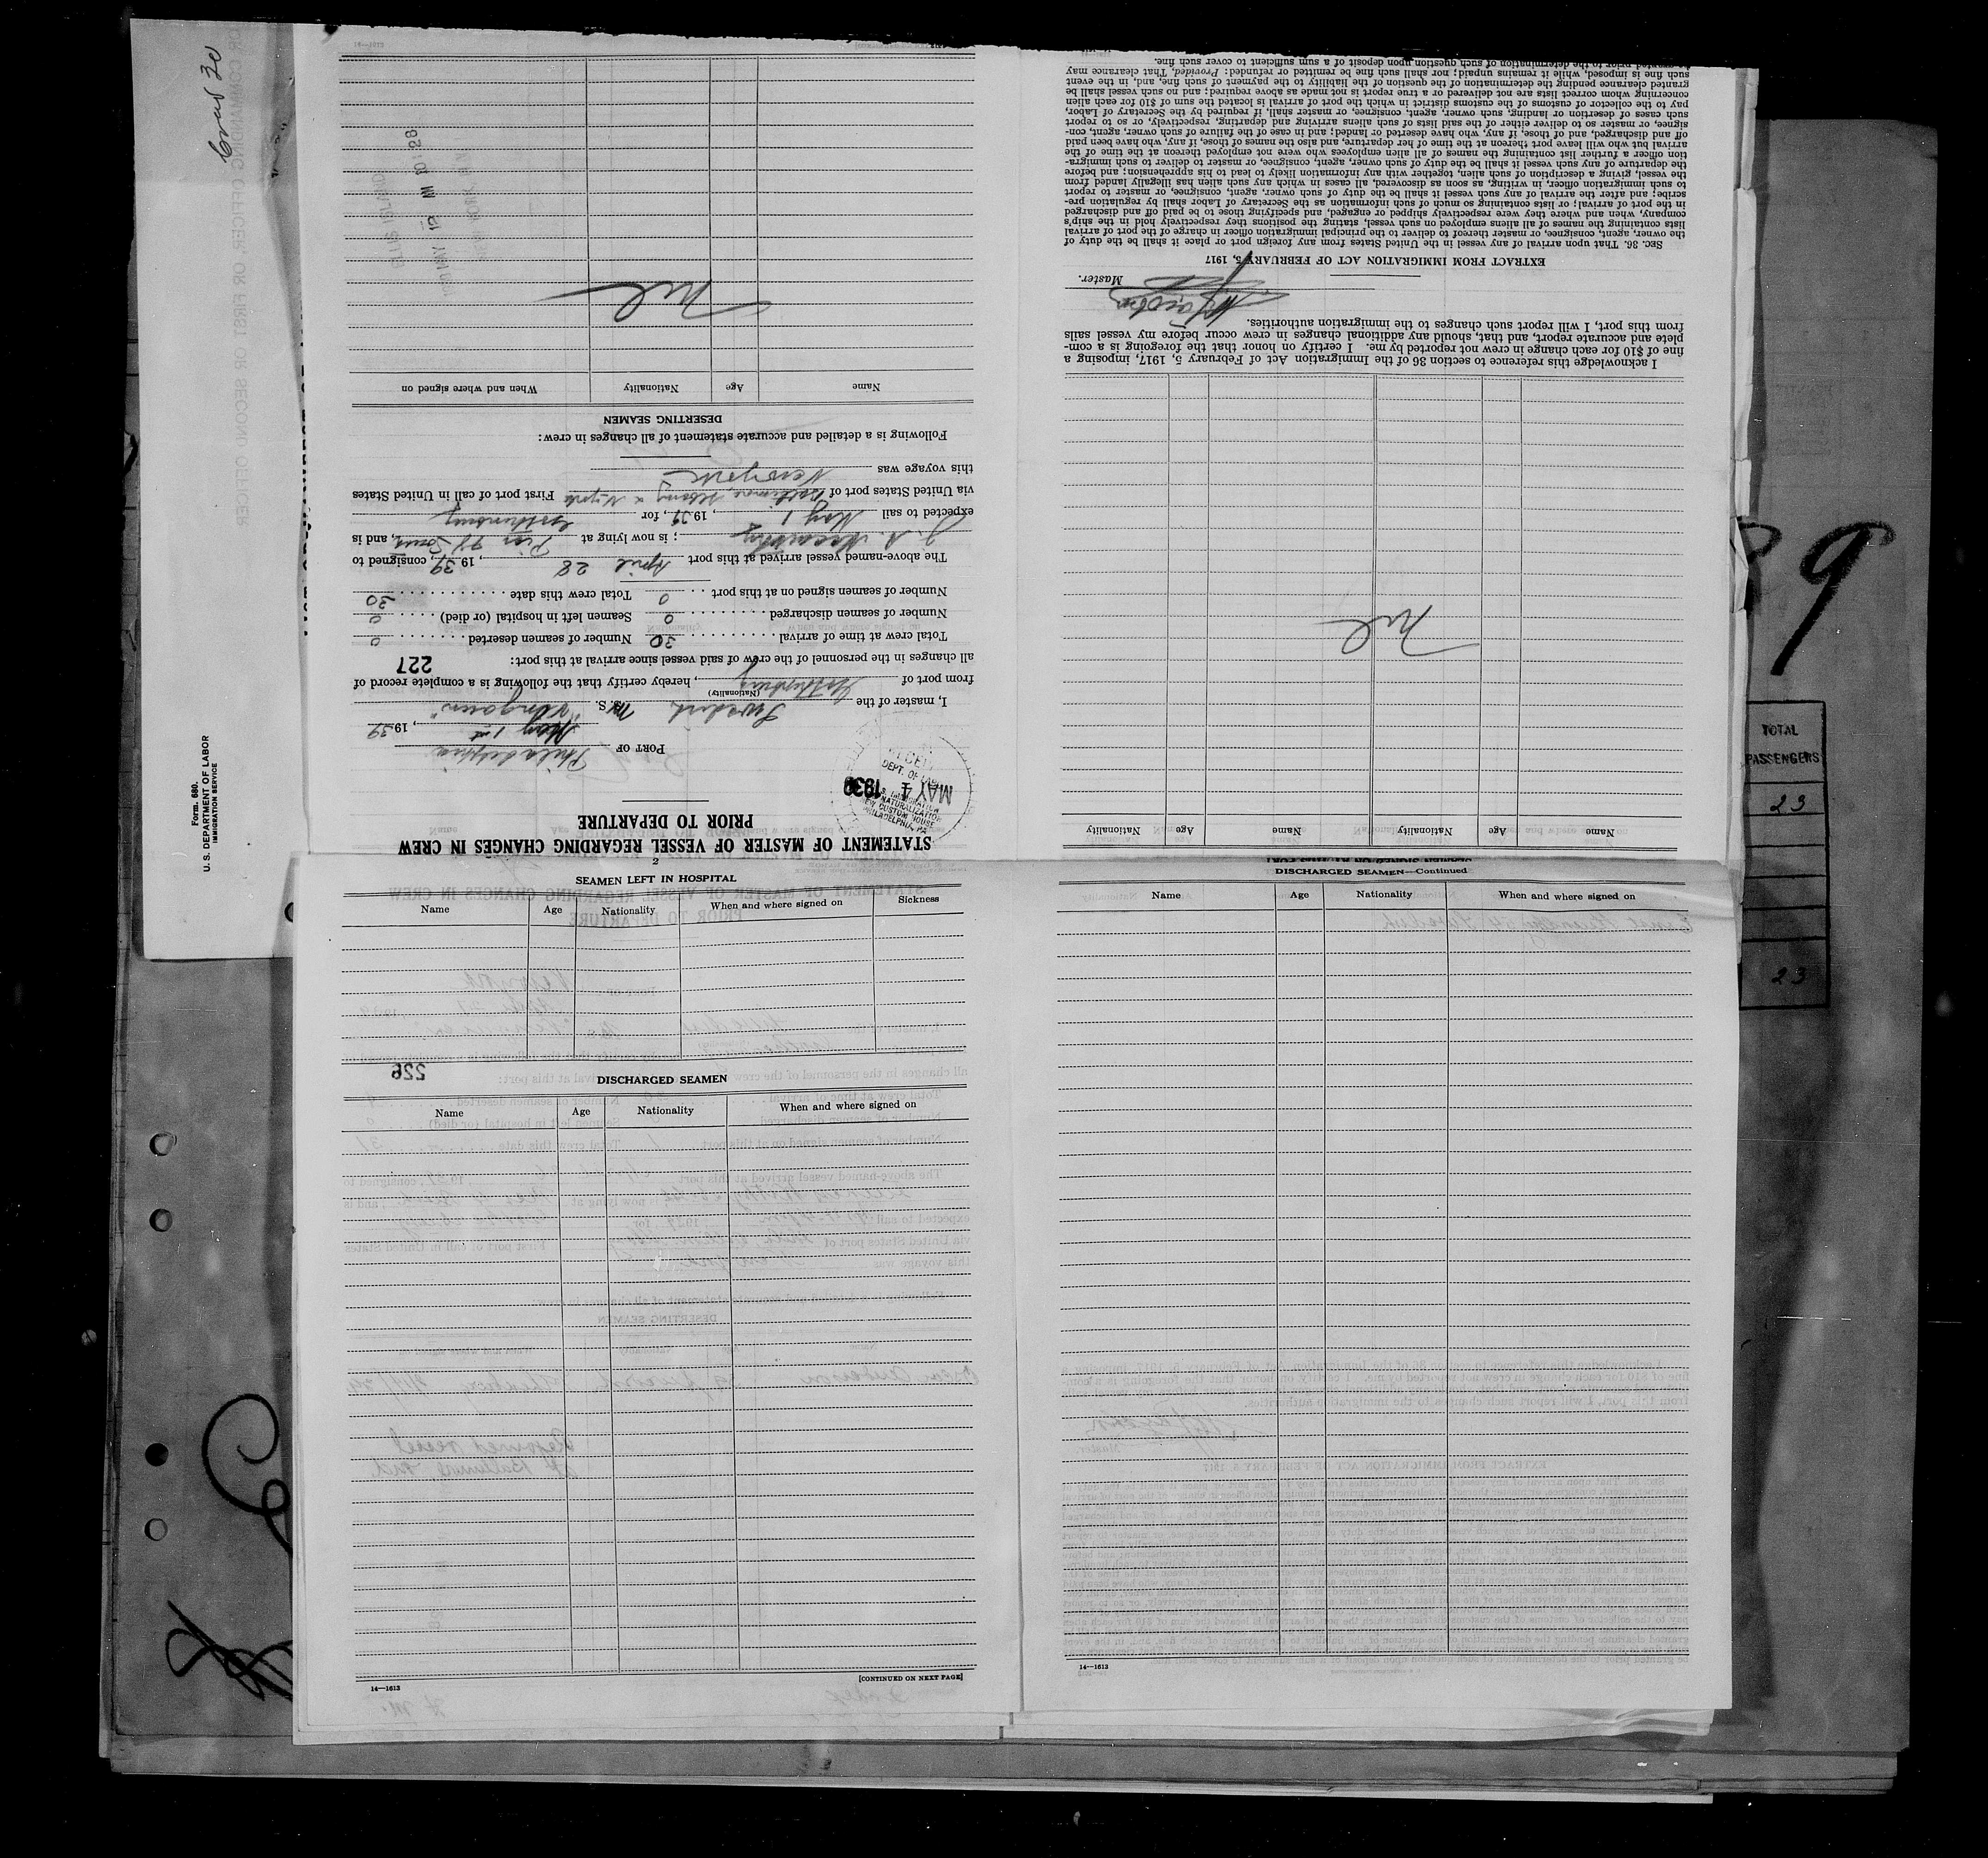 STATEMENT OF MASTER OF VESSEL REGARDING CHANGES IN CREW
PRIOR TO DEPARTURE
PORT OF Philadelphia
May 1st, 1939
I, master of the Swedish M/S. "
(Nationality)
from port of Gothenburg, hereby certify that the following is a complete record of
all changes in the personnel of the crew of said vessel since arrival at this port: 227
Total crew at time of arrival 30 Number of seamen deserted 0
Number of seamen discharged 0 Seamen left in hospital (or died) 0
Number of seamen signed on at this port 0 Total crew this date 30
The above-named vessel arrived at this port April 28, 1939, consigned to
; is now lying at Pier 98 South, and is
expected to sail May 1, 1939, for Gothenburg
via United States port of Baltimore, Albany & N-york First port of call in United States
this voyage was Newyork
Following is a detailed and accurate statement of all changes in crew:
DESERTING SEAMEN
Name Age Nationality When and where signed on
Nil
ELLIS ISLAND
1939 MAY 15 AM 10:28
14—1613
DEPT. OF LABOR
MAY 4 1939
IMMIGRATION
NATURALIZATION
NEW CUSTOM HOUSE
PHILADELPHIA, PA
Name Age Nationality Name Age Nationality
Nil
I acknowledge this reference to section 36 of the Immigration Act of February 5, 1917, imposing a
fine of $10 for each change in crew not reported by me. I certify on honor that the foregoing is a com-
plete and accurate report, and that, should any additional changes in crew occur before my vessel sails
from this port, I will report such changes to the immigration authorities.
Master.
EXTRACT FROM IMMIGRATION ACT OF FEBRUARY 5, 1917
SEC. 36. That upon arrival of any vessel in the United States from any foreign port or place it shall be the duty of
the owner, agent, consignee, or master thereof to deliver to the principal immigration officer in charge of the port of arrival
lists containing the names of all aliens employed on such vessel, stating the positions they respectively hold in the ship's
company, when and where they were respectively shipped or engaged, and specifying those to be paid off and discharged
in the port of arrival; or lists containing so much of such information as the Secretary of Labor shall by regulation pre-
scribe; and after the arrival of any such vessel it shall be the duty of such owner, agent, consignee, or master to report
to such immigration officer, in writing, as soon as discovered, all cases in which any such alien has illegally landed from
the vessel, giving a description of such alien, together with any information likely to lead to his apprehension; and before
the departure of any such vessel it shall be the duty of such owner, agent, consignee, or master to deliver to such immigra-
tion officer a further list containing the names of all alien employees who were not employed thereon at the time of the
arrival but who will leave port thereon at the time of her departure, and also the names of those, if any, who have been paid
off and discharged, and of those, if any, who have deserted or landed; and in case of the failure of such owner, agent, con-
signee, or master so to deliver either of the said lists of such aliens arriving and departing, respectively, or so to report
such cases of desertion or landing, such owner, agent, consignee, or master shall, if required by the Secretary of Labor,
pay to the collector of customs of the customs district in which the port of arrival is located the sum of $10 for each alien
concerning whom correct lists are not delivered or a true report is not made as above required; and no such vessel shall be
granted clearance pending the determination of the question of the liability to the payment of such fine, and, in the event
such fine is imposed, while it remains unpaid; nor shall such fine be remitted or refunded: Provided, That clearance may
be granted prior to the determination of such question upon deposit of a sum sufficient to cover such fine.
2
SEAMEN LEFT IN HOSPITAL
Name Age Nationality When and where signed on Sickness
226
DISCHARGED SEAMEN
Name Age Nationality When and where signed on
14—1613
[CONTINUED ON NEXT PAGE]
DISCHARGED SEAMEN—Continued
Name Age Nationality When and where signed on
14—1613
Form. 680.
U. S. DEPARTMENT OF LABOR
IMMIGRATION SERVICE
Crew 30
OR COMMANDING OFFICER, OR FIRST OR SECOND OFFICER
TOTAL
PASSENGERS
23
23
9